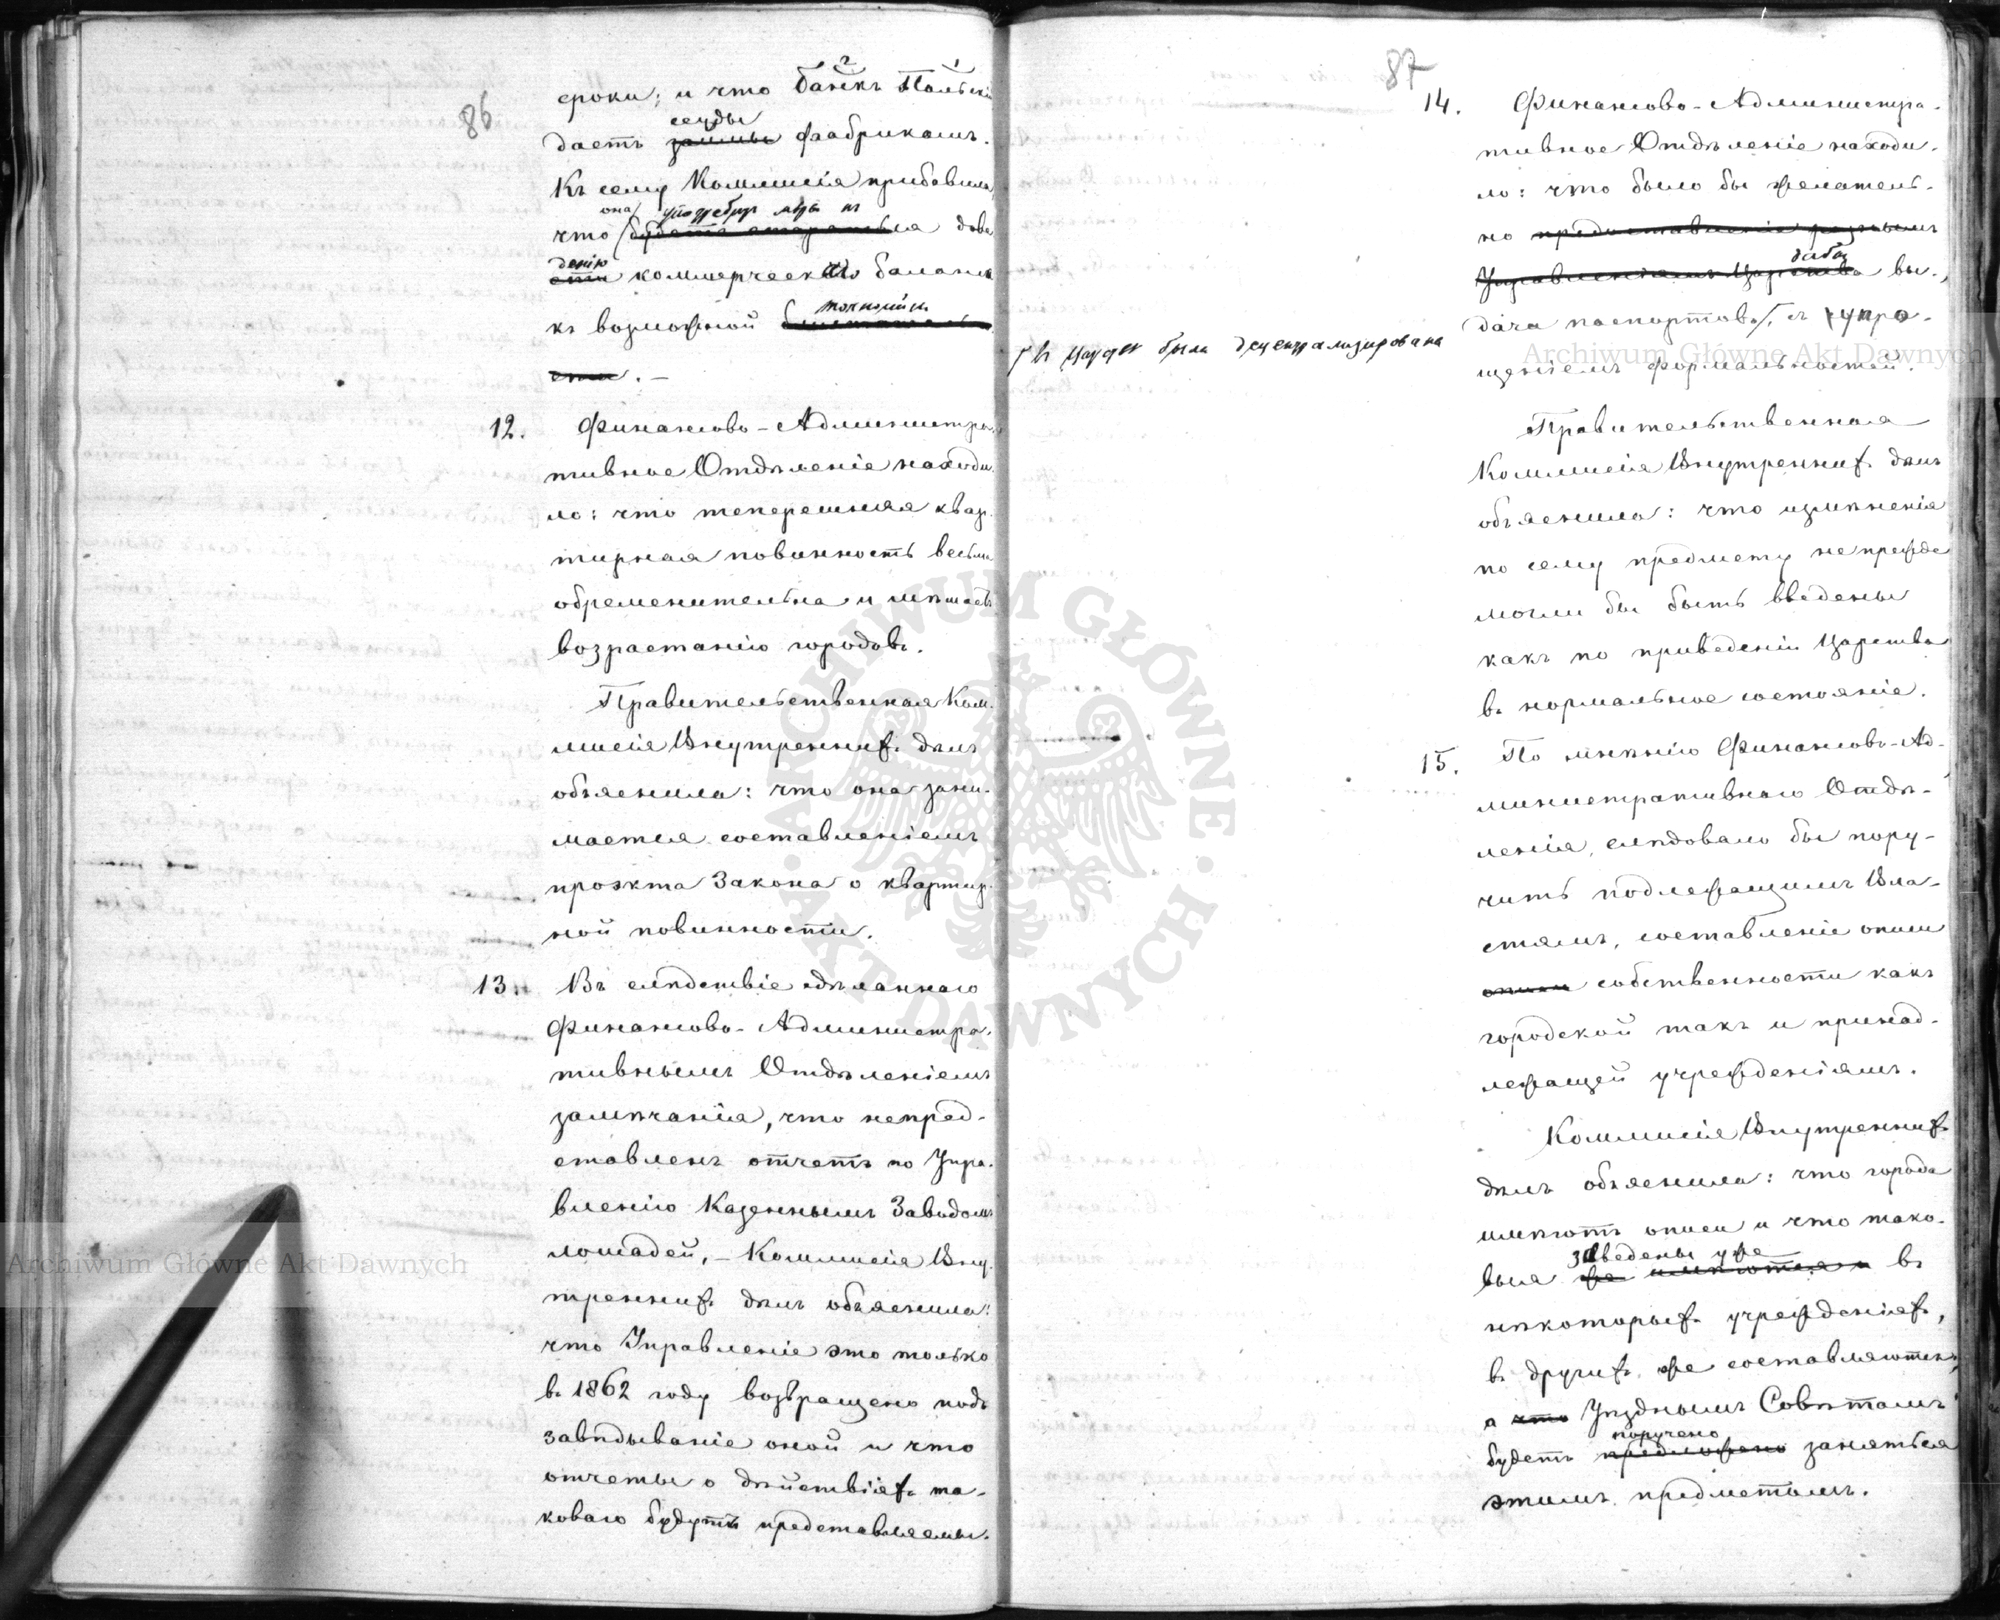 86
сроки; и что Банкъ Польскій
2 1
ссуды
даетъ займы фабрикамъ.
Къ сему Коммисія прибавила,
она употребитъ мѣры къ
что будетъ стараться дове
денію
сти коммерческаго баланса
точности
къ возможной
сти. —
12. Финансово-Администра-
тивное Отдѣленіе находи-
ло: что теперешняя квар-
тирная повинность весьма
обременительна и мѣшаетъ
возрастанію городовъ.
Правительственная Ком-
мисія Внутреннихъ дѣлъ
объяснила: что она зани-
мается составленіемъ
проэкта Закона о квартир-
ной повинности.
13. Въ слѣдствіе сдѣланнаго
Финансово-Администра-
тивнымъ Отдѣленіемъ
замѣчанія, что непред-
ставленъ отчетъ по Упра-
вленію Казеннымъ Заводомъ
лошадей, — Коммисія Вну-
треннихъ дѣлъ объяснила:
что Управленіе это только
въ 1862 году возвращено подъ
завѣдываніе оной и что
отчеты о дѣйствіяхъ та-
коваго будутъ представляемы.
87
14. Финансово-Администра-
тивное Отдѣленіе находи-
ло: что было бы желатель-
но предоставленіе разнымъ
дабы
Управленіямъ Царства вы-
дача паспортовъ, съ упро-
въ Царствѣ была децентрализирована
щеніемъ формальностей.
Правительственная
Коммисія Внутреннихъ дѣлъ
объяснила: что измѣненія
по сему предмету не прежде
могли бы быть введены
какъ по приведеніи Царства
въ нормальное состояніе.
15. По мнѣнію Финансово-Ад-
министративнаго Отдѣ-
ленія, слѣдовало бы пору-
чить подлежащимъ Вла-
стямъ, составленіе описи
описи собственности какъ
городской такъ и принад-
лежащей учрежденіямъ.
Коммисія Внутреннихъ
дѣлъ объяснила: что города
имѣютъ описи и что тако-
заведены уже
выя же имѣются въ
нѣкоторыхъ учрежденіяхъ,
въ другихъ же составляются,
а что Уѣзднымъ Совѣтамъ
поручено
будетъ предложено заняться
этимъ предметомъ.
Archiwum Główne Akt Dawnych
Archiwum Główne Akt Dawnych
ARCHIWUM GŁÓWNE · AKT DAWNYCH ·